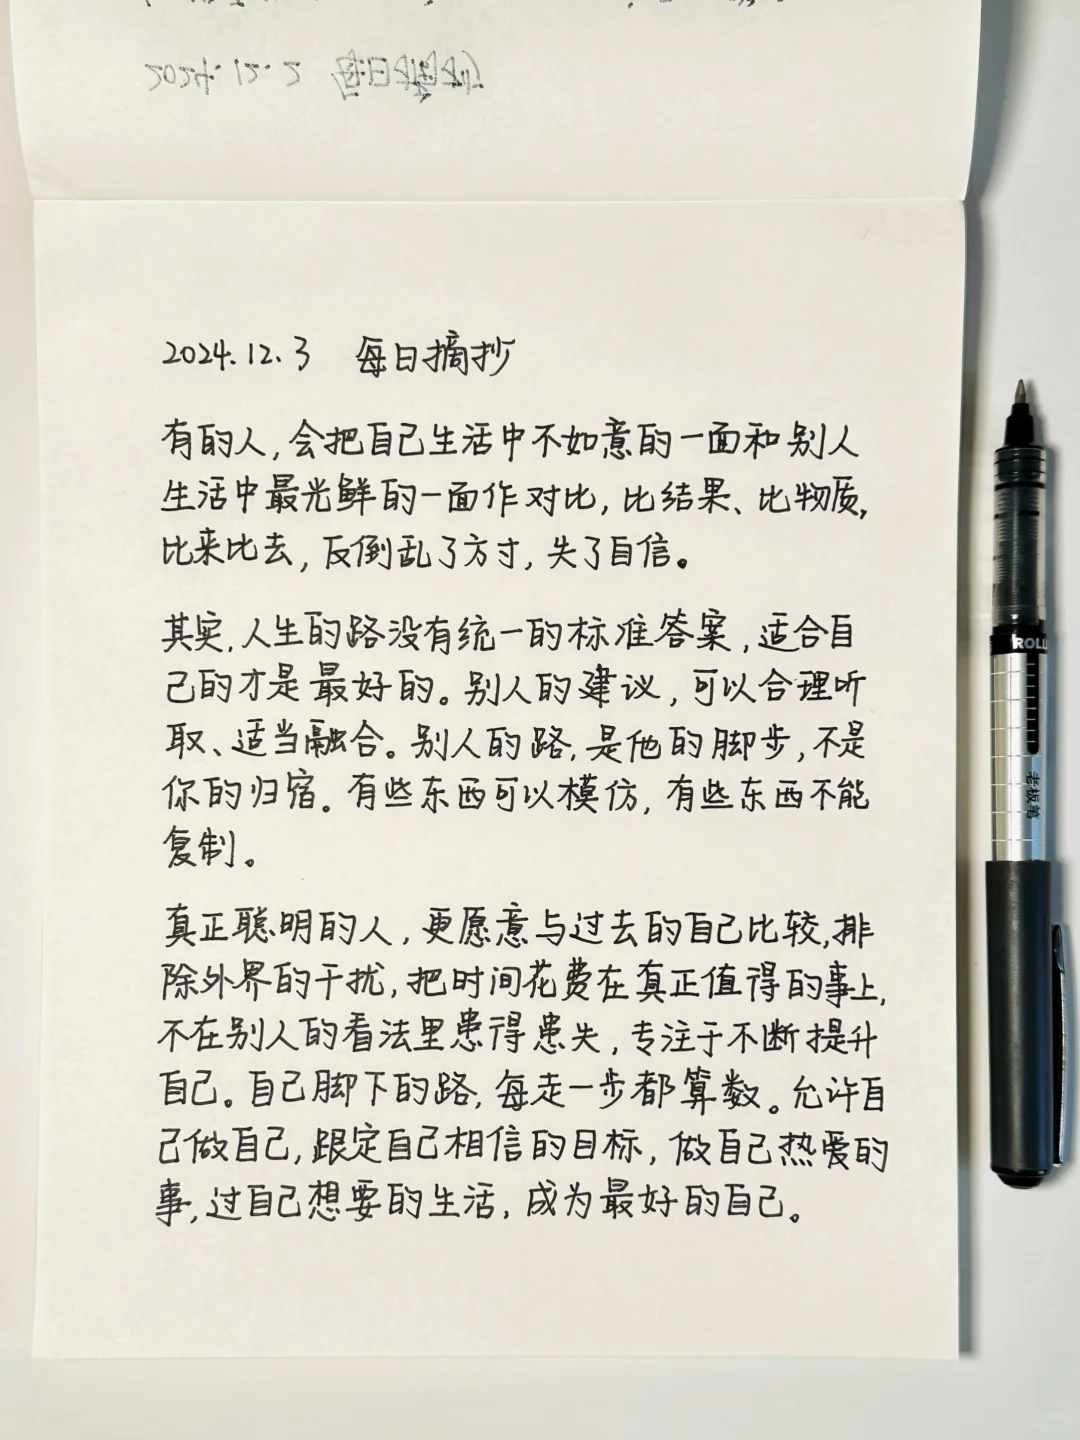 2024.12.2 每日摘抄
2024.12.3 每日摘抄
有的人,会把自己生活中不如意的一面和别人
生活中最光鲜的一面作对比,比结果、比物质,
比来比去,反倒乱了方寸,失了自信。
其实,人生的路没有统一的标准答案,适合自
己的才是最好的。别人的建议,可以合理听
取、适当融合。别人的路,是他的脚步,不是
你的归宿。有些东西可以模仿,有些东西不能
复制。
真正聪明的人,更愿意与过去的自己比较,排
除外界的干扰,把时间花费在真正值得的事上,
不在别人的看法里患得患失,专注于不断提升
自己。自己脚下的路,每走一步都算数。允许自
己做自己,跟定自己相信的目标,做自己热爱的
事,过自己想要的生活,成为最好的自己。
ROLL
老板笔